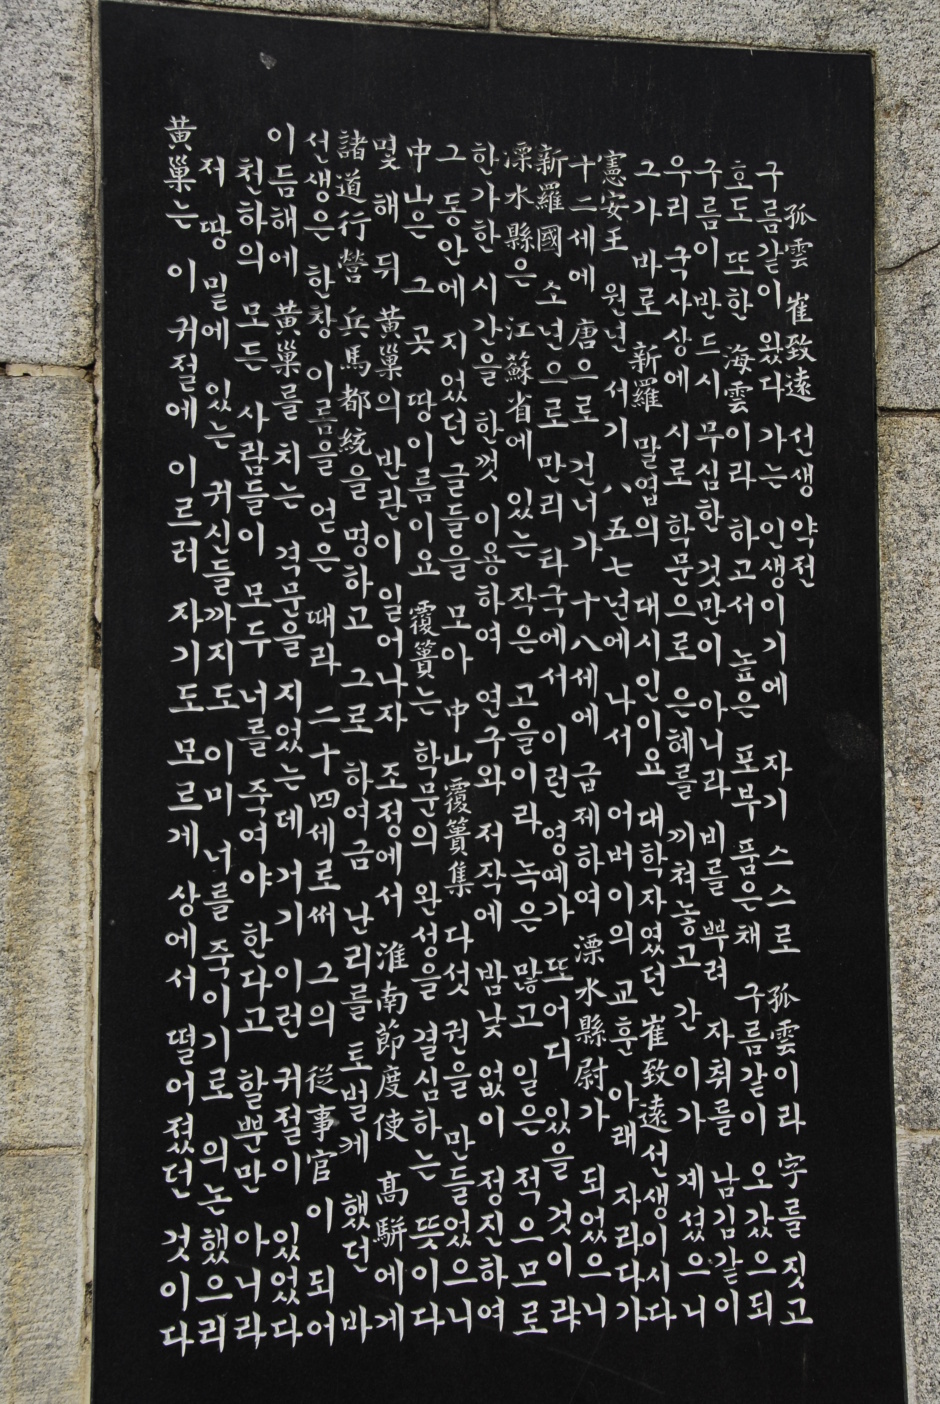 孤雲 崔致遠 선생 약전
구름같이 왔다 가는 인생이기에 자기 스스로 孤雲이라 字를 짓고
호도 또한 海雲이라 하고서 높은 포부 품은채 구름같이 오갔으되
구름이 반드시 무심한 것만이 아니라 비를 뿌려 자취를 남김같이
우리 국사상에 시로 학문으로 은혜를 끼쳐놓고 간 이가 계셨으니
그가 바로 新羅 말엽의 대시인이요 대학자였던 崔致遠선생이시다
憲安王 원년 서기 八五七년에 나서 어버이의 교훈 아래 자라다가
十二세에 唐으로 건너가 十八세에 급제하여 漂水縣尉가 되었으니
新羅國 소년으로 만리 타국에서 이런 영예가 또어디 있을 것이랴
漂水縣은 江蘇省에 있는 작은 고을이라 녹은 많고 일은 적으므로
한가한 시간을 한껏 이용하여 연구와 저작에 밤낮 없이 정진하여
그 동안에 지었던 글들을 모아 中山覆簣集 다섯 권을 만들었으니
中山은 그 곳 땅이름이요 覆簣는 학문의 완성을 결심하는 뜻이다
몇 해 뒤 黃巢의 반란이 일어나자 조정에서 淮南節度使 高駢에게
諸道行營 兵馬都統을 명하고 그로 하여금 난리를 토벌케 했던 바
선생은 한창 이름을 얻은 때라 二十四세로써 그의 從事官이 되어
이듬해에 黃巢를 치는 격문을 지었는데 거기 이런 귀절이 있었다
천하의 모든 사람들이 모두 너를 죽여야 한다고 할뿐만 아니라
저 땅 밑에 있는 귀신들까지도 이미 너를 죽이기로 의논했으리
黃巢는 이 귀절에 이르러 자기도 모르게 상에서 떨어졌던 것이다